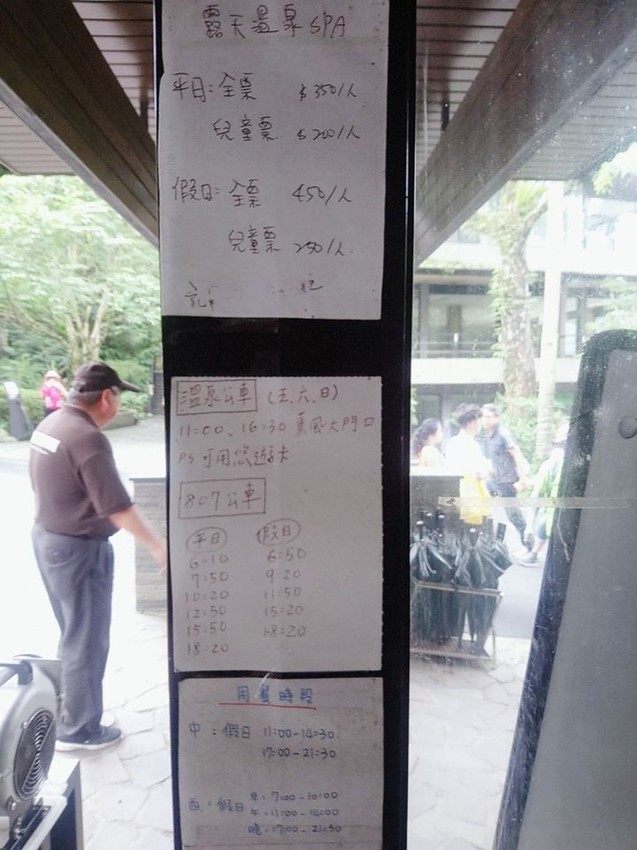 露天温泉SPA
平日：全票 $350/人
兒童票 $200/人
假日：全票 450/人
兒童票 250/人
温泉公車 (五.六.日)
11:00、16:30 大門口
PS 可用悠遊卡
807公車
平日 假日
6:10 6:50
7:50 9:20
10:20 11:50
12:50 15:20
15:50 18:20
18:20
用餐時段
中：假日 11:00-14:30
17:00-21:30
西：假日 早：7:00-10:00
午：11:00-14:00
晚：17:00-21:30